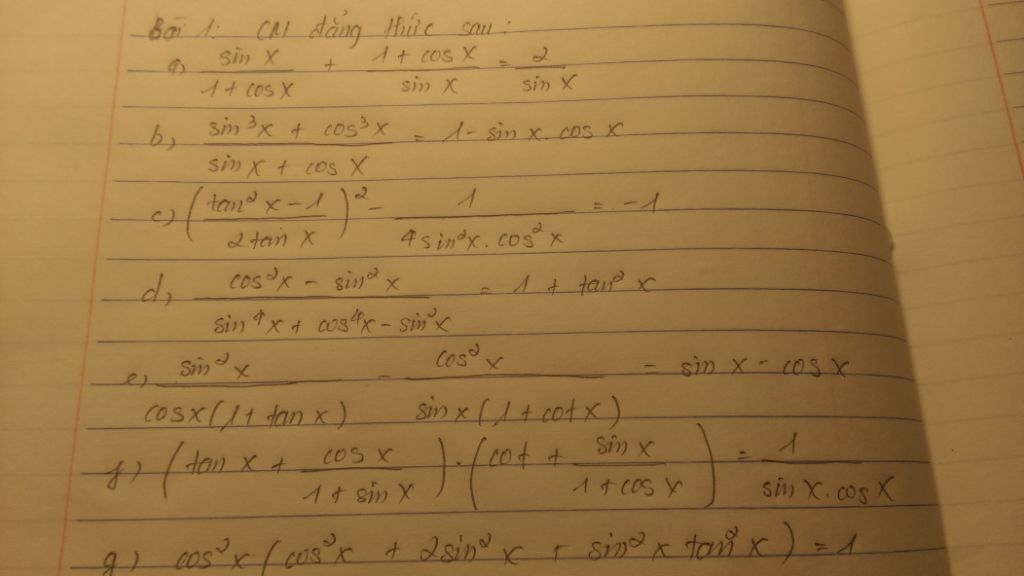 Bài 1: CM đẳng thức sau:
a) sin x / (1 + cos x) + (1 + cos x) / sin x = 2 / sin x
b) (sin³x + cos³x) / (sin x + cos x) = 1 - sin x. cos x
c) ((tan²x - 1) / (2 tan x))² - 1 / (4 sin²x. cos²x) = -1
d) (cos²x - sin²x) / (sin⁴x + cos⁴x - sin²x) = 1 + tan²x
e) sin²x / (cosx(1 + tan x)) - cos²x / (sinx(1 + cotx)) = sin x - cos x
f) (tan x + cos x / (1 + sin x)) . (cot + sin x / (1 + cos x)) = 1 / (sin x. cos x)
g) cos²x (cos²x + 2sin²x + sin²x tan²x) = 1